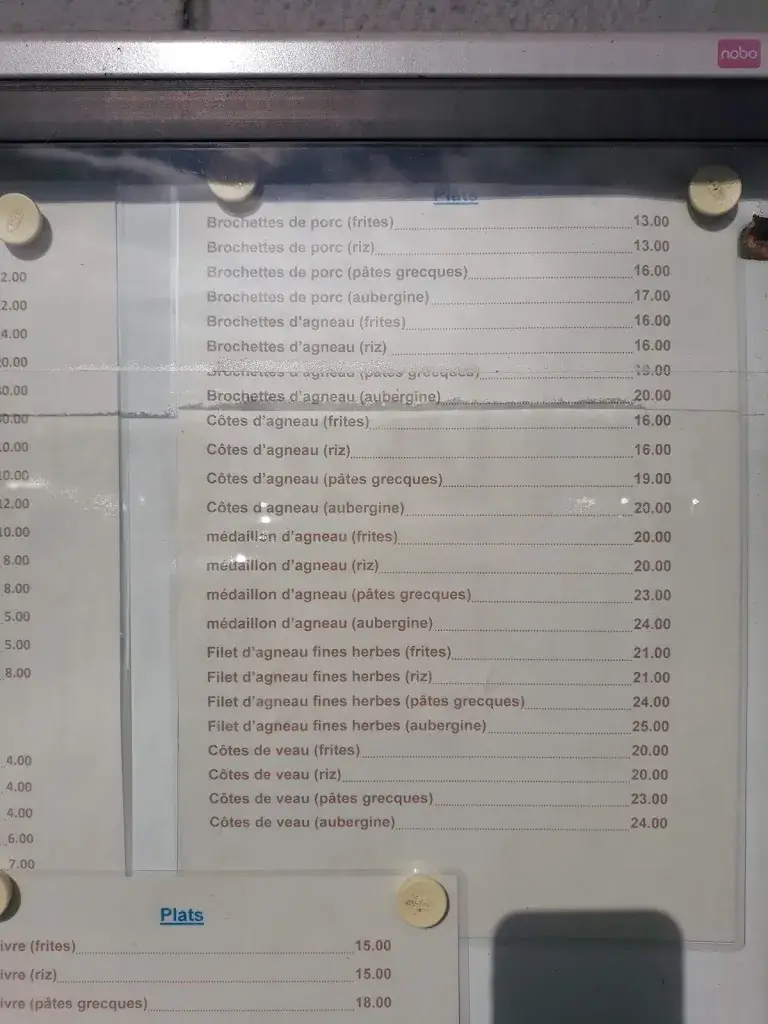 nobo
Plats
Brochettes de porc (frites) 13.00
Brochettes de porc (riz) 13.00
Brochettes de porc (pâtes grecques) 16.00
Brochettes de porc (aubergine) 17.00
Brochettes d'agneau (frites) 16.00
Brochettes d'agneau (riz) 16.00
Brochettes d'agneau (pâtes grecques)
Brochettes d'agneau (aubergine) 20.00
Côtes d'agneau (frites) 16.00
Côtes d'agneau (riz) 16.00
Côtes d'agneau (pâtes grecques) 19.00
Côtes d'agneau (aubergine) 20.00
médaillon d'agneau (frites) 20.00
médaillon d'agneau (riz) 20.00
médaillon d'agneau (pâtes grecques) 23.00
médaillon d'agneau (aubergine) 24.00
Filet d'agneau fines herbes (frites) 21.00
Filet d'agneau fines herbes (riz) 21.00
Filet d'agneau fines herbes (pâtes grecques) 24.00
Filet d'agneau fines herbes (aubergine) 25.00
Côtes de veau (frites) 20.00
Côtes de veau (riz) 20.00
Côtes de veau (pâtes grecques) 23.00
Côtes de veau (aubergine) 24.00
2.00
2.00
4.00
0.00
0.00
0.00
0.00
12.00
10.00
8.00
8.00
5.00
5.00
8.00
4.00
4.00
4.00
6.00
7.00
Plats
ivre (frites) 15.00
ivre (riz) 15.00
ivre (pâtes grecques) 18.00